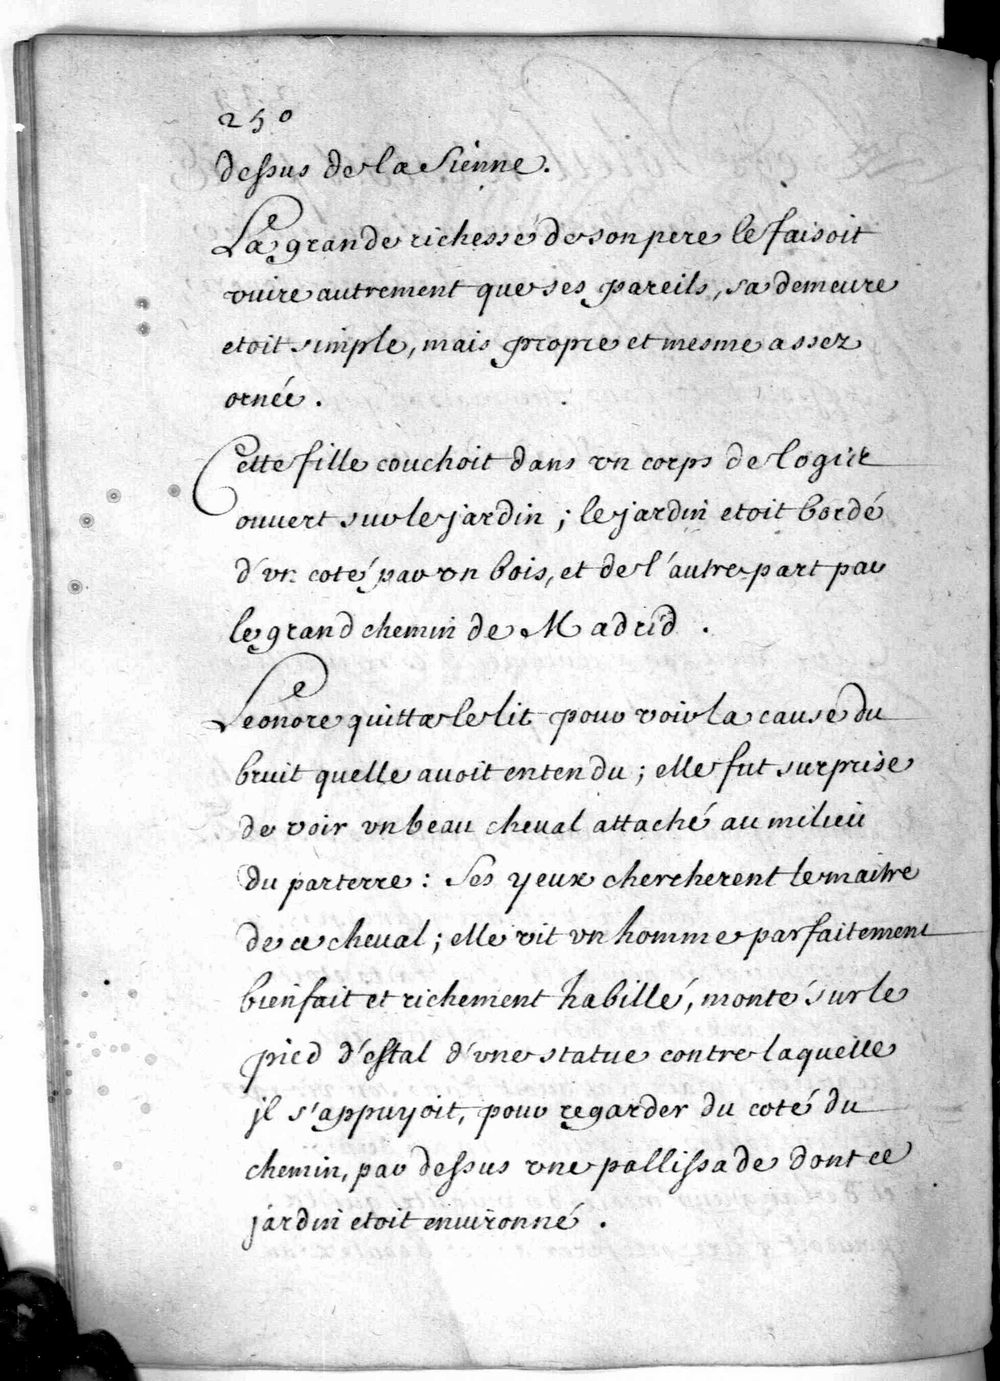 250
dessus de la sienne.
La grande richesse de son pere le faisoit
vuire autrement que ses pareils, sa demeure
etoit simple, mais propre et mesme assez
ornée.
Cette fille couchoit dans vn corps de logis
ouvert sur le jardin ; le jardin etoit bordé
d'vn coté par vn bois, et de l'autre part par
le grand chemin de Madrid .
Leonore quitta le lit pour voir la cause du
bruit quelle auoit entendu ; elle fut surprise
de voir vn beau cheual attaché au milieu
du parterre : Ses yeux chercherent le maitre
de ce cheual ; elle vit vn homme parfaitement
bienfait et richement habillé, monté sur le
pied d'estal d'vne statue contre laquelle
jl s'appuyoit, pour regarder du coté du
chemin, par dessus vne pallissade dont ce
jardin etoit enuironné .